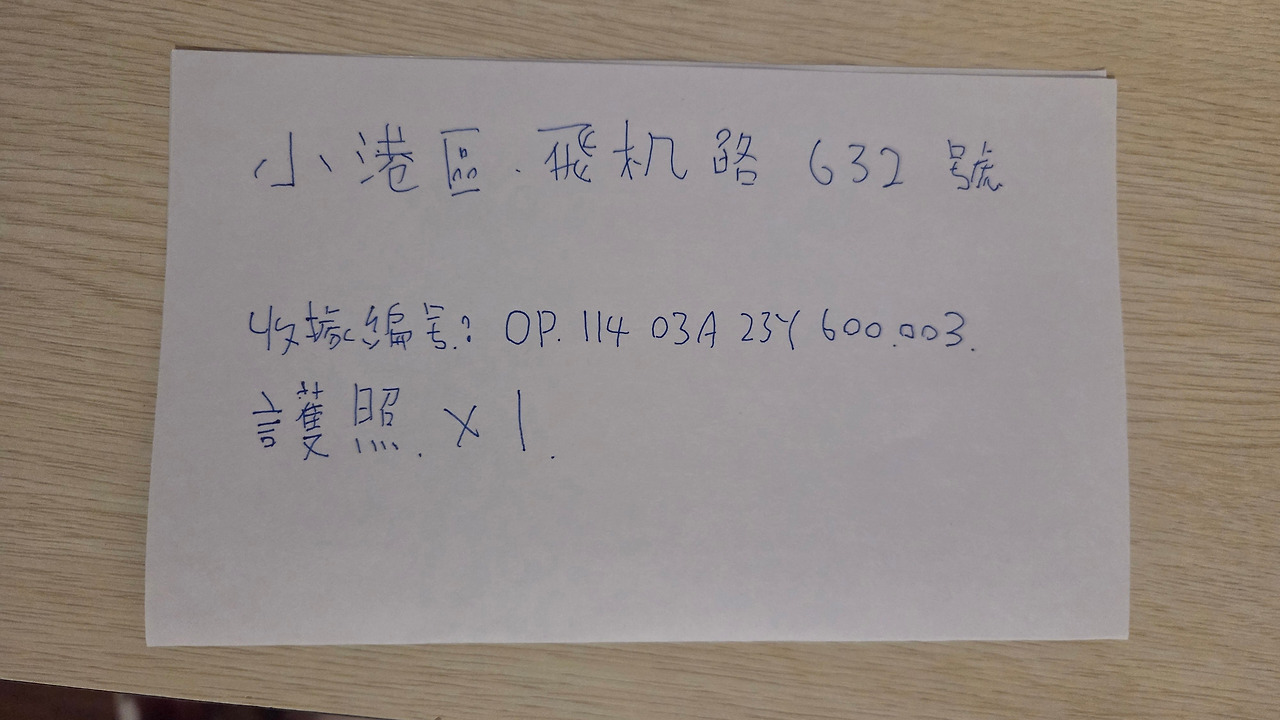 小港區.飛机路 632 號
收據編号：OP. 114 03A 23Y 600.003.
護照. x 1.